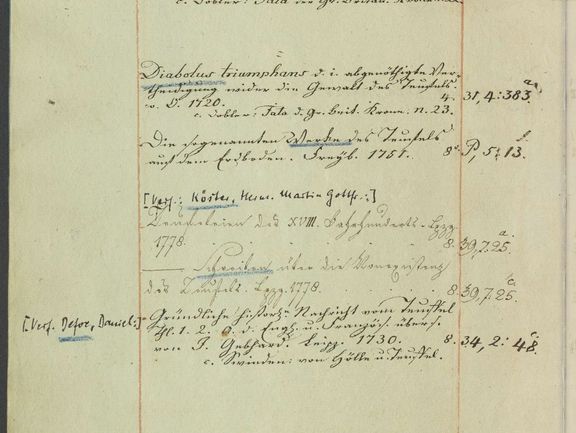 c. Dobler: Fata der Gr. Britan. Kronen
Diabolus triumphans d. i. abgenöthigte Ver-
theidigung wider die Gewalt des Teufels.
o. O. 1720. 4. 31, 4: 383. a.
c. Dobler: Fata d. Gr. brit. Krone. n. 23.
Die sogenannten Werke des Teufels
auf dem Erdboden. Freyb. 1751. 8. P, 5: 13.
[Verf.: Köster, Herm. Martin Gottfr.:]
Teufeleien des XVIII. Jahrhunderts. Lpzg.
1778. 8. 39, 7: 25. a.
Schreiben über die Nonexistenz
des Teufels. Lpzg. 1778. 8. 39, 7: 25.
[Verf. Defoe, Daniel:]
Gründliche histor. Nachricht vom Teuffel
Thl. 1. 2. a. d. Engl. u. Französ. übers.
von J. Gebhard. Leipz. 1730. 8. 34, 2: 48.
c. Swinden: von Hölle u. Teuffel.